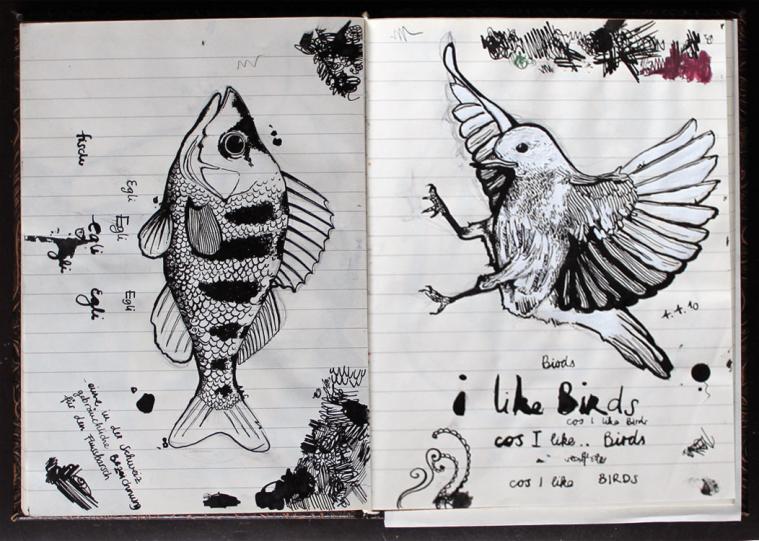 fische
Egli
Egli
egli
Egli
egli
Egli
eine in der Schweiz
gebräuchliche Bezeichnung
für den Flussbarsch
1.1.10
Birds
i like Birds
cos I like Birds
cos I like.. Birds
cos I like BIRDS